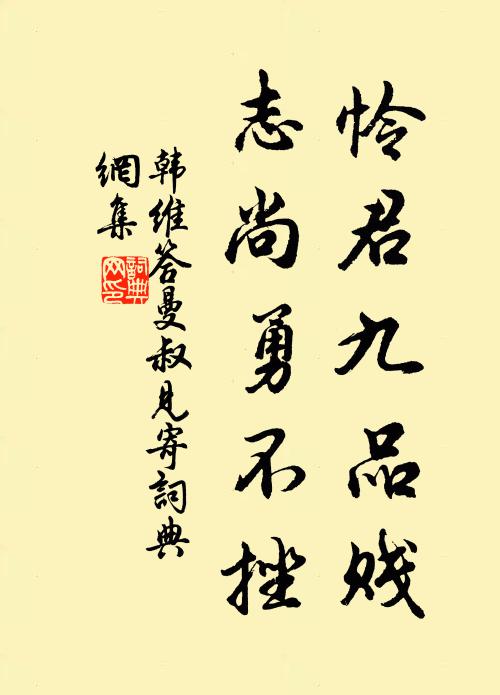 怜君九品贱
志尚勇不挫
韩维答曼叔见寄詞典
網集
詞典网印